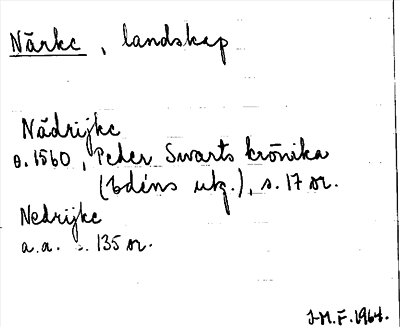 Närke, landskap
Nädrijke
o. 1560, Peder Swarts krönika
(Edéns utg.), s. 17 or.
Nedrijke
a.a. s. 135 or.
J.M.F. 1964.